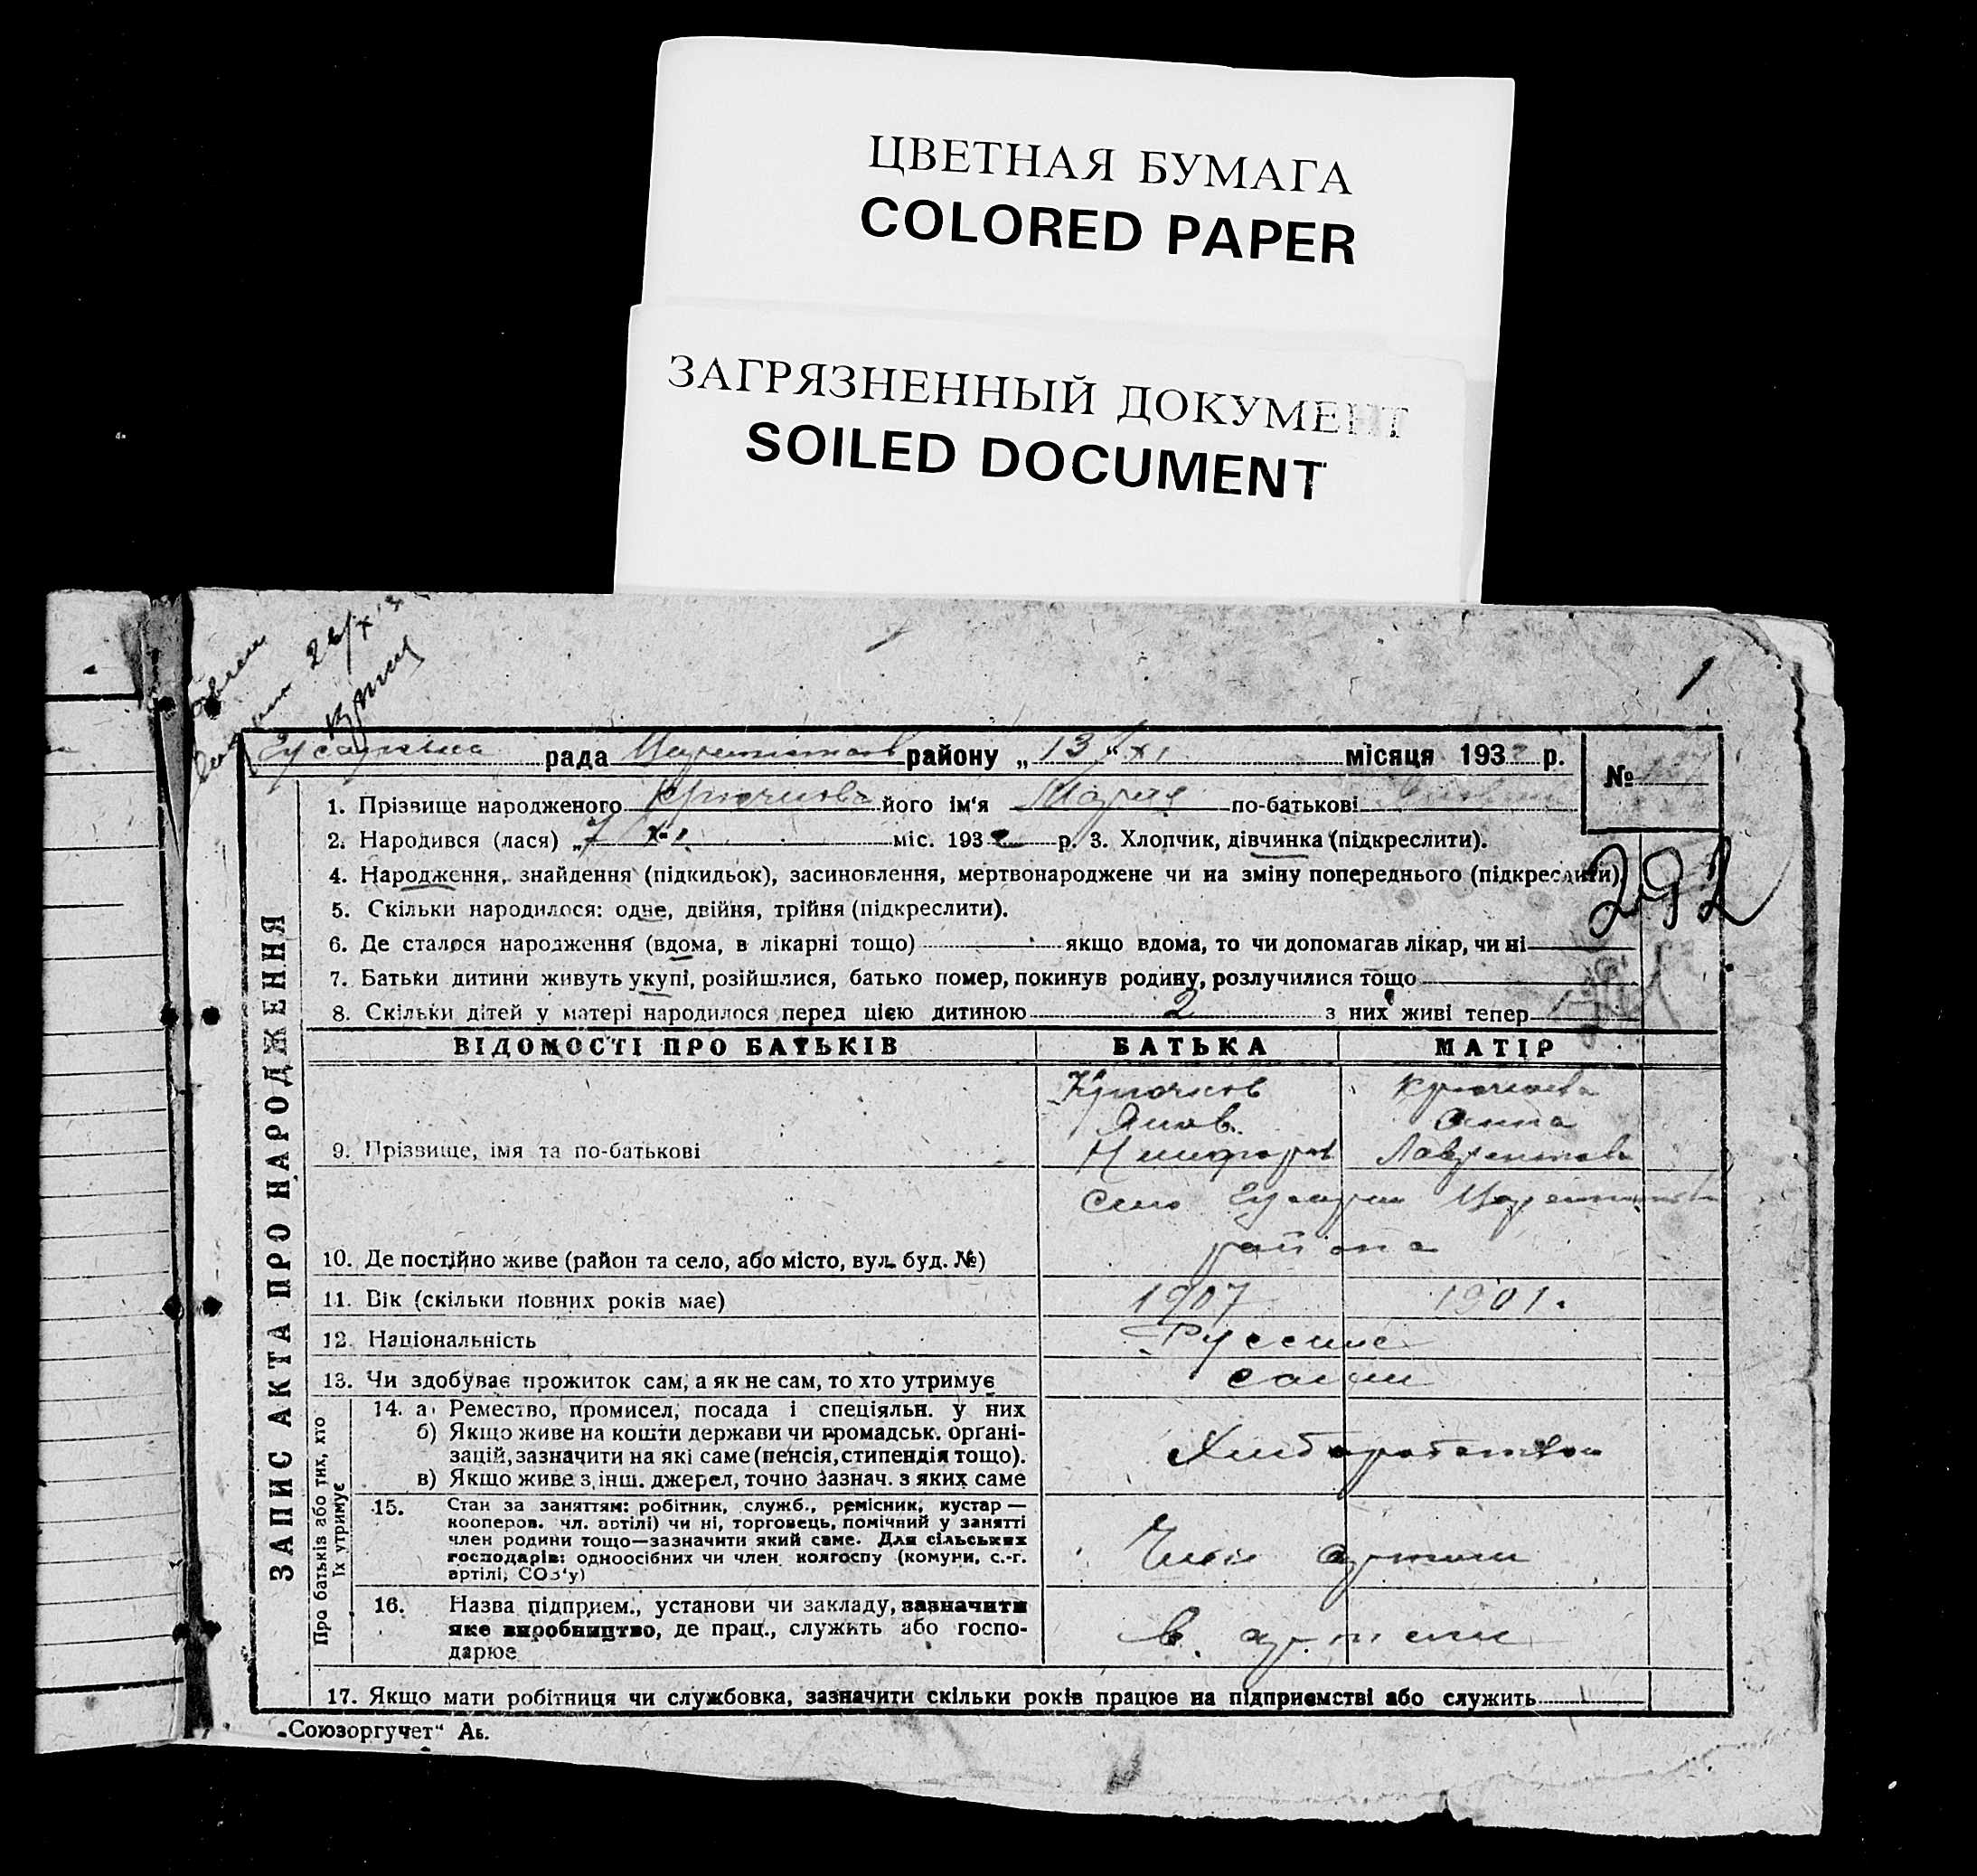 ЦВЕТНАЯ БУМАГА
COLORED PAPER
ЗАГРЯЗНЕННЫЙ ДОКУМЕНТ
SOILED DOCUMENT
1
рада району „13“ XI місяця 1932 р.
№
1. Прізвище народженого Крючкова його ім'я Мария по-батькові
2. Народився (лася) „7 XI міс. 1932 р. 3. Хлопчик, дівчинка (підкреслити).
4. Народження, знайдення (підкидьок), засиновлення, мертвонароджене чи на зміну попереднього (підкреслити)
292
5. Скільки народилося: одне, двійня, трійня (підкреслити).
6. Де сталося народження (вдома, в лікарні тощо) якщо вдома, то чи допомагав лікар, чи ні
7. Батьки дитини живуть укупі, розійшлися, батько помер, покинув родину, розлучилися тощо
8. Скільки дітей у матері народилося перед цією дитиною 2 з них живі тепер
ЗАПИС АКТА ПРО НАРОДЖЕННЯ
ВІДОМОСТІ ПРО БАТЬКІВ БАТЬКА МАТІР
Крючков Крючкова
Яков Анна
9. Прізвище, імя та по-батькові Никифоров Лаврентьева
Село
района
10. Де постійно живе (район та село, або місто, вул. буд. №)
11. Вік (скільки повних років має) 1907 1901.
12. Національність Русские
13. Чи здобуває прожиток сам, а як не сам, то хто утримує сами
Про батьків або тих, хто
їх утримує
14. а) Ремество, промисел, посада і спеціяльн. у них
б) Якщо живе на кошти держави чи громадськ. органі-
зацій, зазначити на які саме (пенсія, стипендія тощо).
в) Якщо живе з інш. джерел, точно зазнач. з яких саме
15. Стан за заняттям: робітник, служб., ремісник, кустар —
кооперов. чл. артілі) чи ні, торговець, помічний у занятті
член родини тощо—зазначити який саме. Для сільських
господарів: одноосібних чи член колгоспу (комуни, с.-г.
артілі, СОЗ'у)
Член артели
16. Назва підприєм., установи чи закладу, зазначити
яке виробництво, де прац., служить або госпо-
дарює
в артели
17. Якщо мати робітниця чи службовка, зазначити скільки років працює на підприємстві або служить
„Союзоргучет“ Аь.